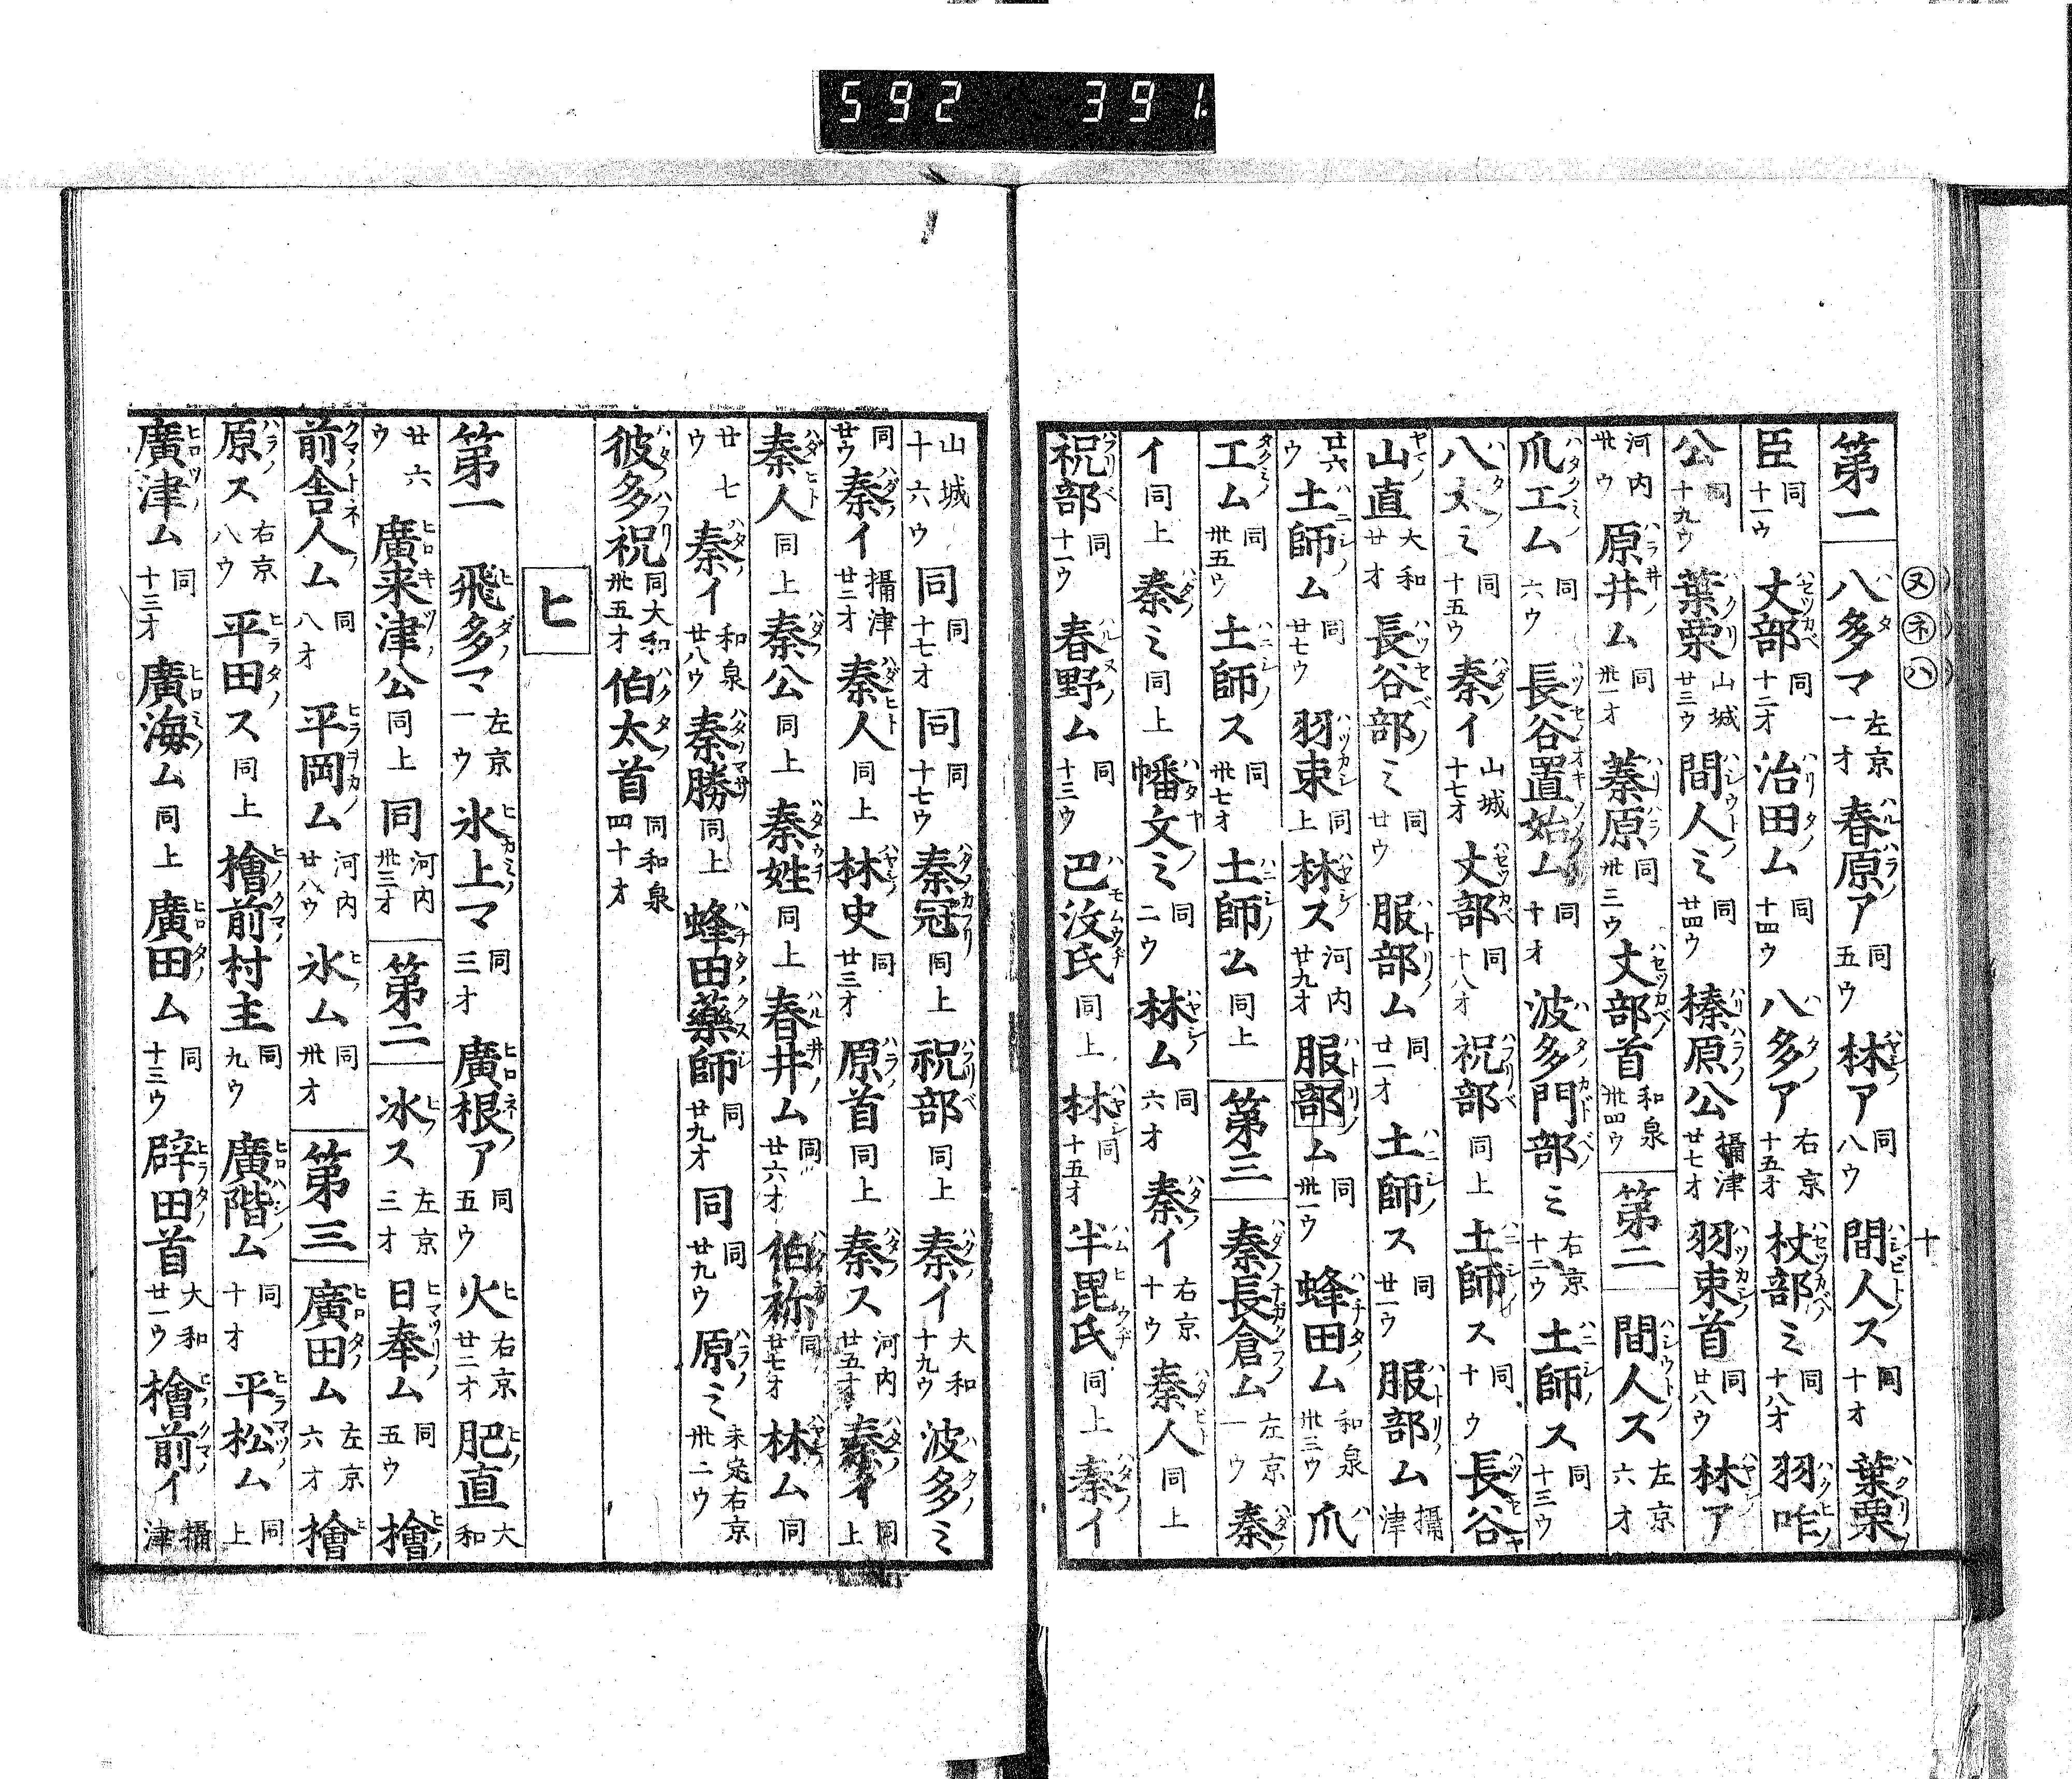 592 391.
ヌ ネ ハ
十
第一 八多マ 左京一オ 春原ア 同五ウ 林ア 同八ウ 間人ス 同十オ 葉栗
臣 同十一ウ 丈部 同十二オ 治田ム 同十四ウ 八多ア 右京十五オ 杖部ミ 同十八オ 羽咋
公 同十九ウ 葉栗 山城廿三ウ 間人ミ 同廿四ウ 榛原公 攝津廿七オ 羽束首 同廿八ウ 林ア
河内卅ウ 原井ム 同卅一オ 蓁原 同卅三ウ 丈部首 和泉卅四ウ 第二 間人ス 左京六オ
爪工ム 同六ウ 長谷置始ム 同十オ 波多門部ミ 右京十二ウ 土師ス 同十三ウ
八太ミ 同十五ウ 秦イ 山城十七オ 丈部 同十八オ 祝部 同上 土師ス 同十ウ 長谷
山直 大和廿オ 長谷部ミ 同廿ウ 服部ム 同廿一オ 土師ス 同廿一ウ 服部ム 攝津
廿六ウ 土師ム 同廿七ウ 羽束 同上 林ス 河内廿九オ 服部ム 同卅一ウ 蜂田ム 和泉卅三ウ 爪
工ム 同卅五ウ 土師ス 同卅七オ 土師ム 同上 第三 秦長倉ム 左京一ウ 秦
イ 同上 秦ミ 同上 幡文ミ 同二ウ 林ム 同六オ 秦イ 右京十ウ 秦人 同上
祝部 同十一ウ 春野ム 同十三ウ 巴汶氏 同上 林 同十五オ 半毘氏 同上 秦イ
山城十六ウ 同 同十七オ 同 同十七ウ 秦冠 同上 祝部 同上 秦イ 大和十九ウ 波多ミ
同廿ウ 秦イ 攝津廿二オ 秦人 同上 林史 同廿三オ 原首 同上 秦ス 河内廿五オ 秦イ 同上
秦人 同上 秦公 同上 秦姓 同上 春井ム 同廿六オ 伯祢 同廿七オ 林ム 同
廿七ウ 秦イ 和泉廿八ウ 秦勝 同上 蜂田藥師 同廿九オ 同 同廿九ウ 原ミ 未定右京卅二ウ
彼多祝 同大和卅五オ 伯太首 同和泉四十オ
ヒ
第一 飛多マ 左京一ウ 氷上マ 同三オ 廣根ア 同五ウ 火 右京廿二オ 肥直 大和
廿六ウ 廣来津公 同上 同 河内卅三オ 第二 氷ス 左京三オ 日奉ム 同五ウ 檜
前舎人ム 同八オ 平岡ム 河内廿八ウ 氷ム 同卅オ 第三 廣田ム 左京六オ 檜
原ス 右京八ウ 平田ス 同上 檜前村主 同九ウ 廣階ム 同十オ 平松ム 同上
廣津ム 同十三オ 廣海ム 同上 廣田ム 同十三ウ 辟田首 大和廿一ウ 檜前イ 攝津